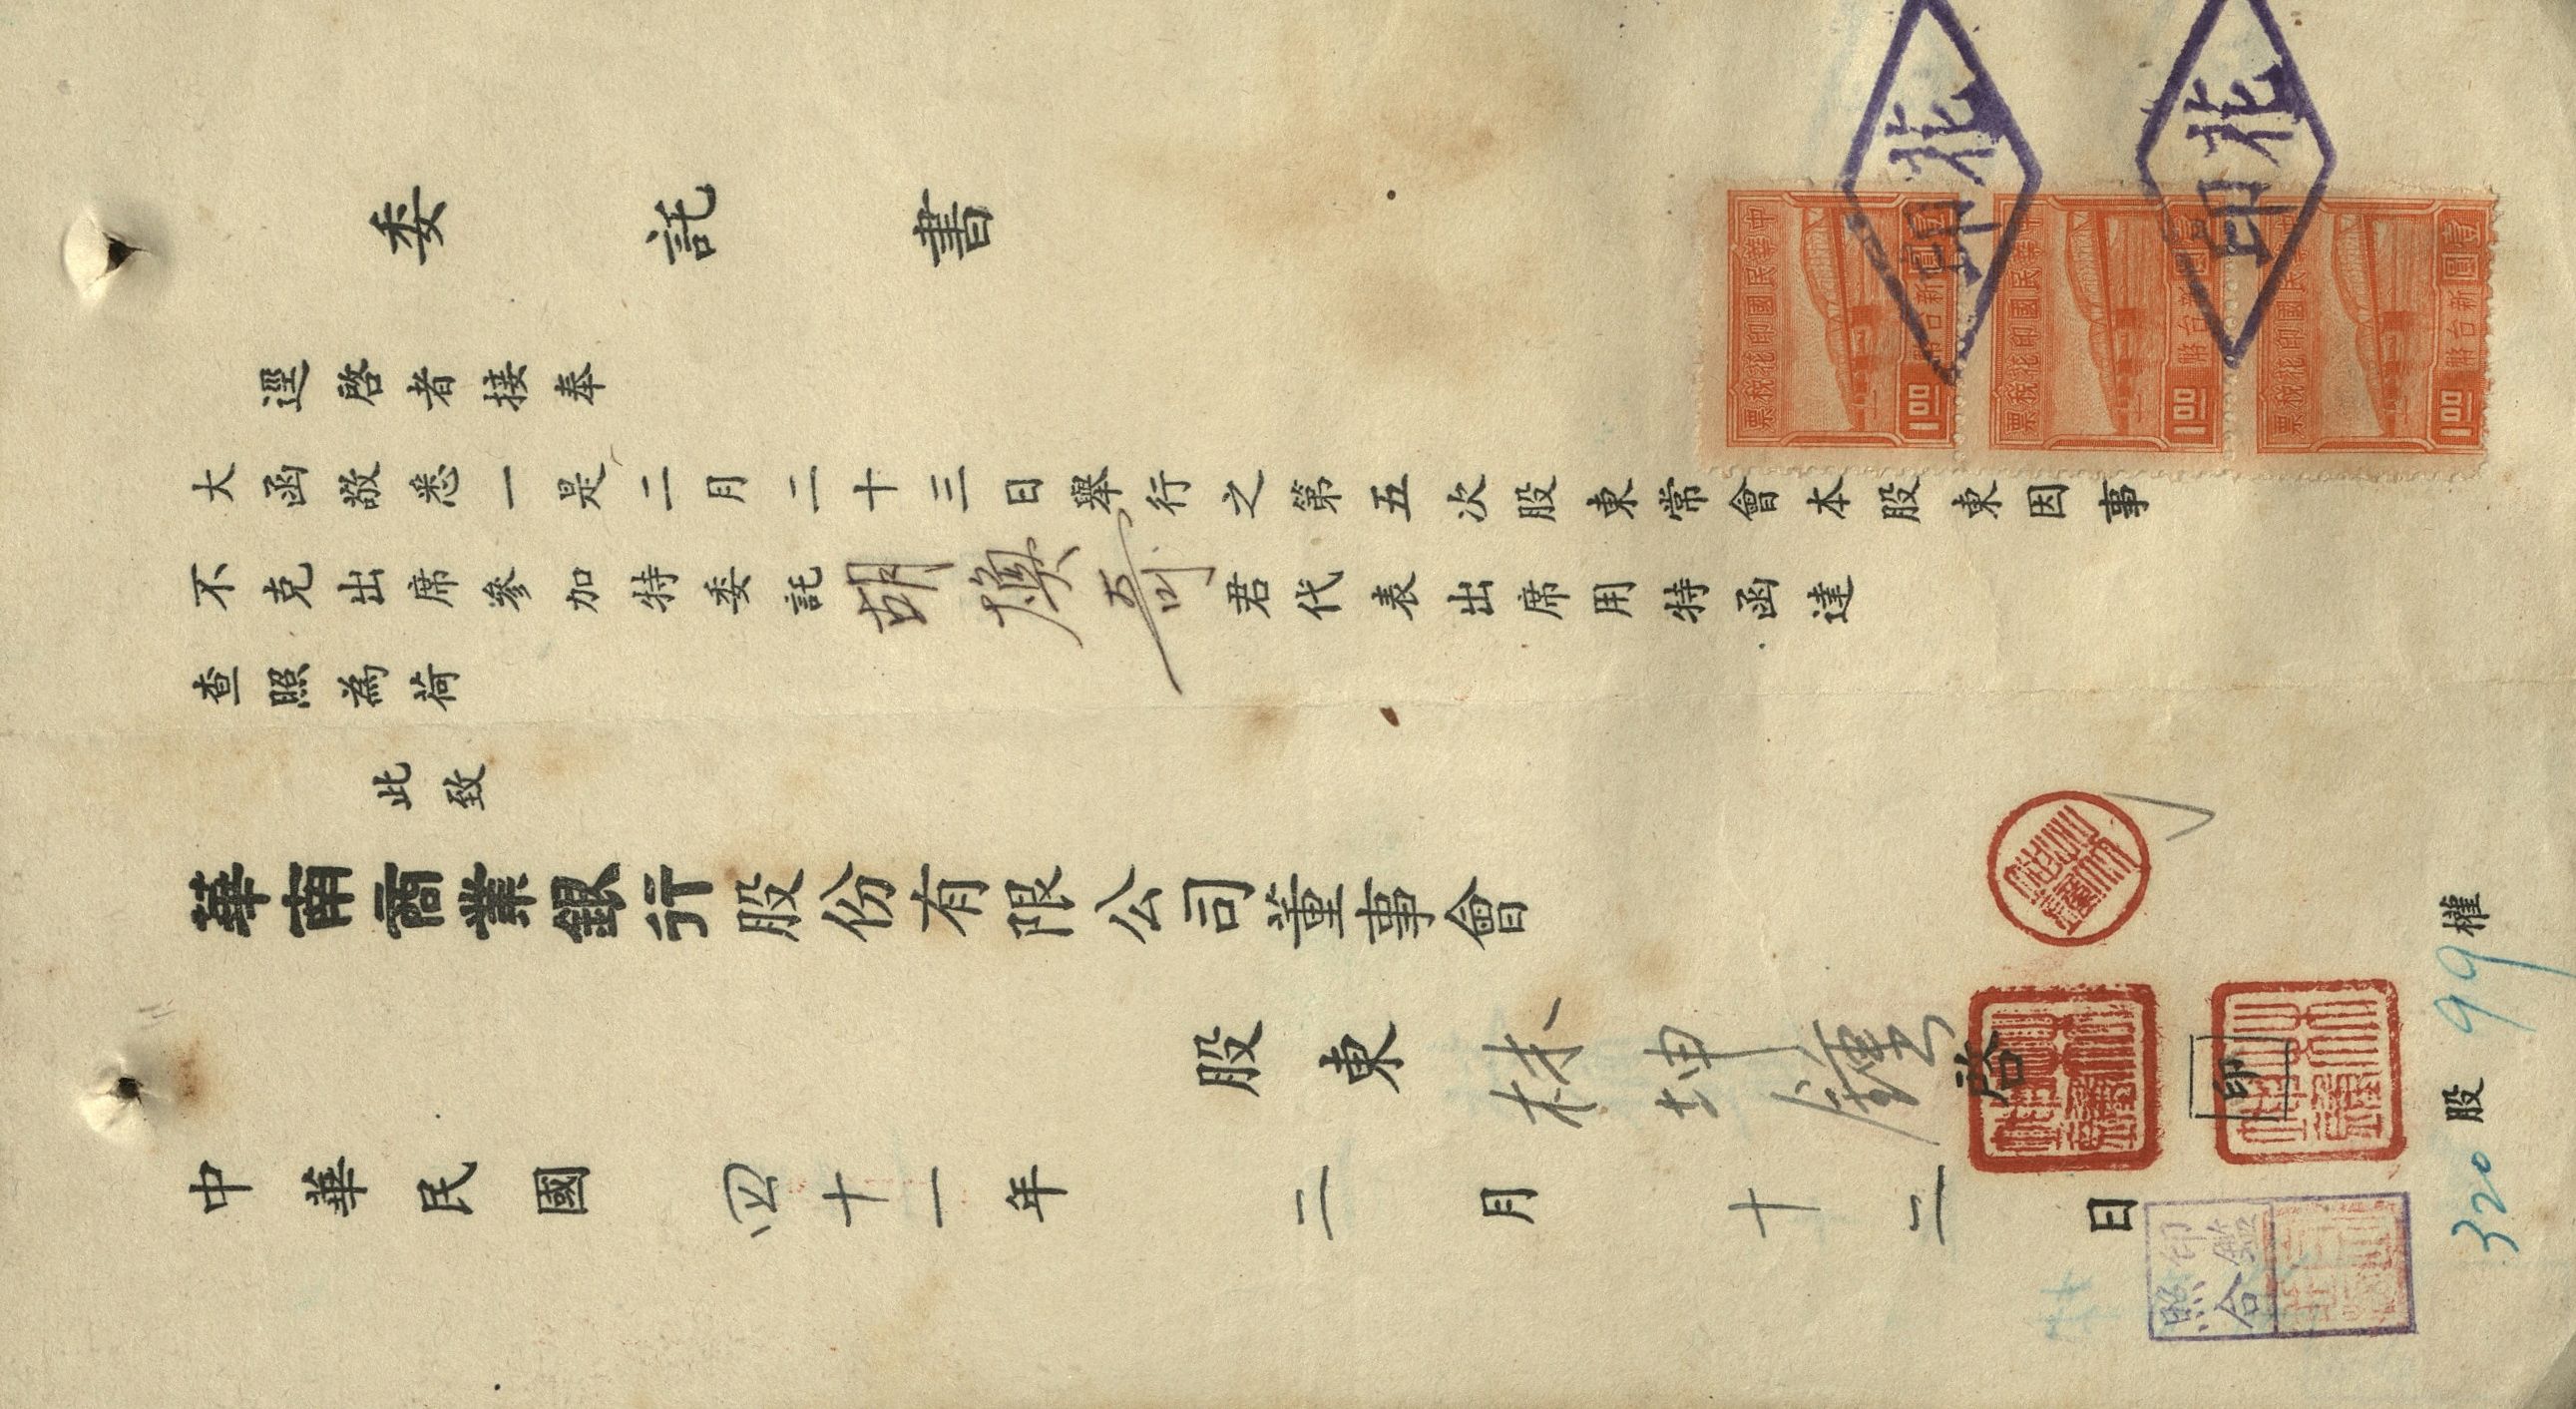 委託書
逕啓者接奉
大函敬悉一是二月二十三日舉行之第五次股東常會本股東因事
不克出席參加特委託胡煥奇君代表出席用特函達
查照為荷
此致
華南商業銀行股份有限公司董事會
股東林坤鐘啓
印
中華民國四十一年二月十二日
320股99權
印鑑
照合
中華民國印花稅票
壹圓新台幣
1.00
中華民國印花稅票
壹圓新台幣
1.00
中華民國印花稅票
壹圓新台幣
1.00
印花
印花